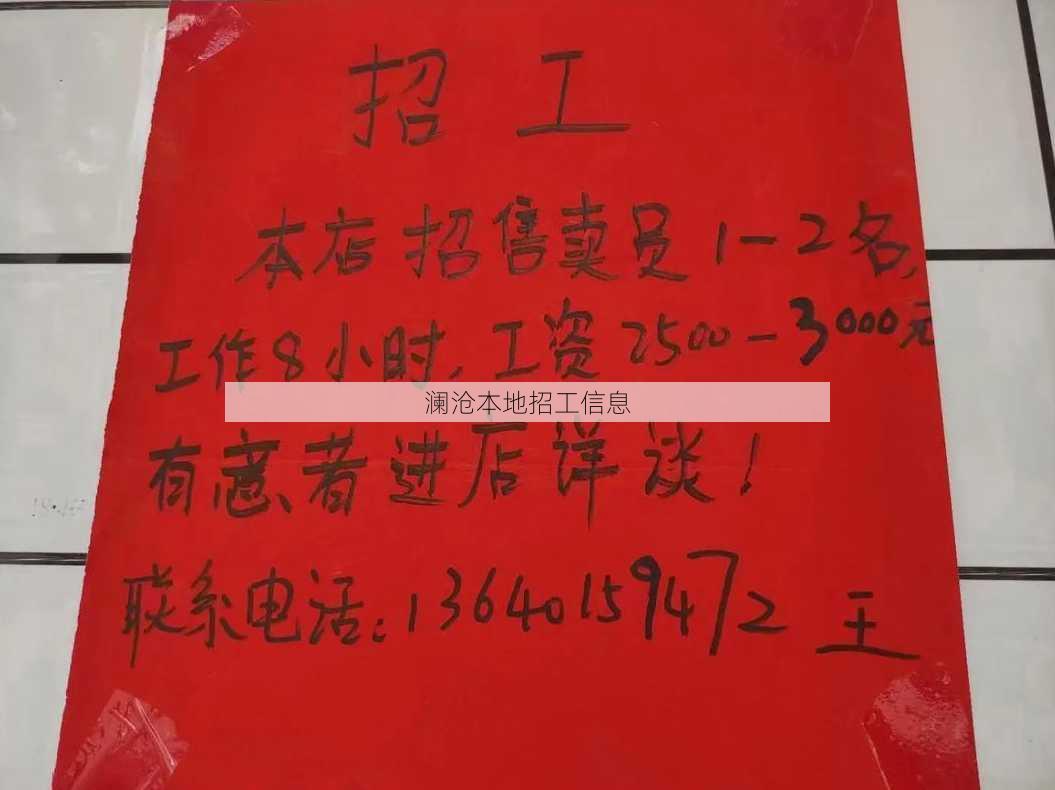 招工
本店招售卖员1-2名，
工作8小时，工资2500-3000元
澜沧本地招工信息
有意者进店详谈！
联系电话：13640159472 王